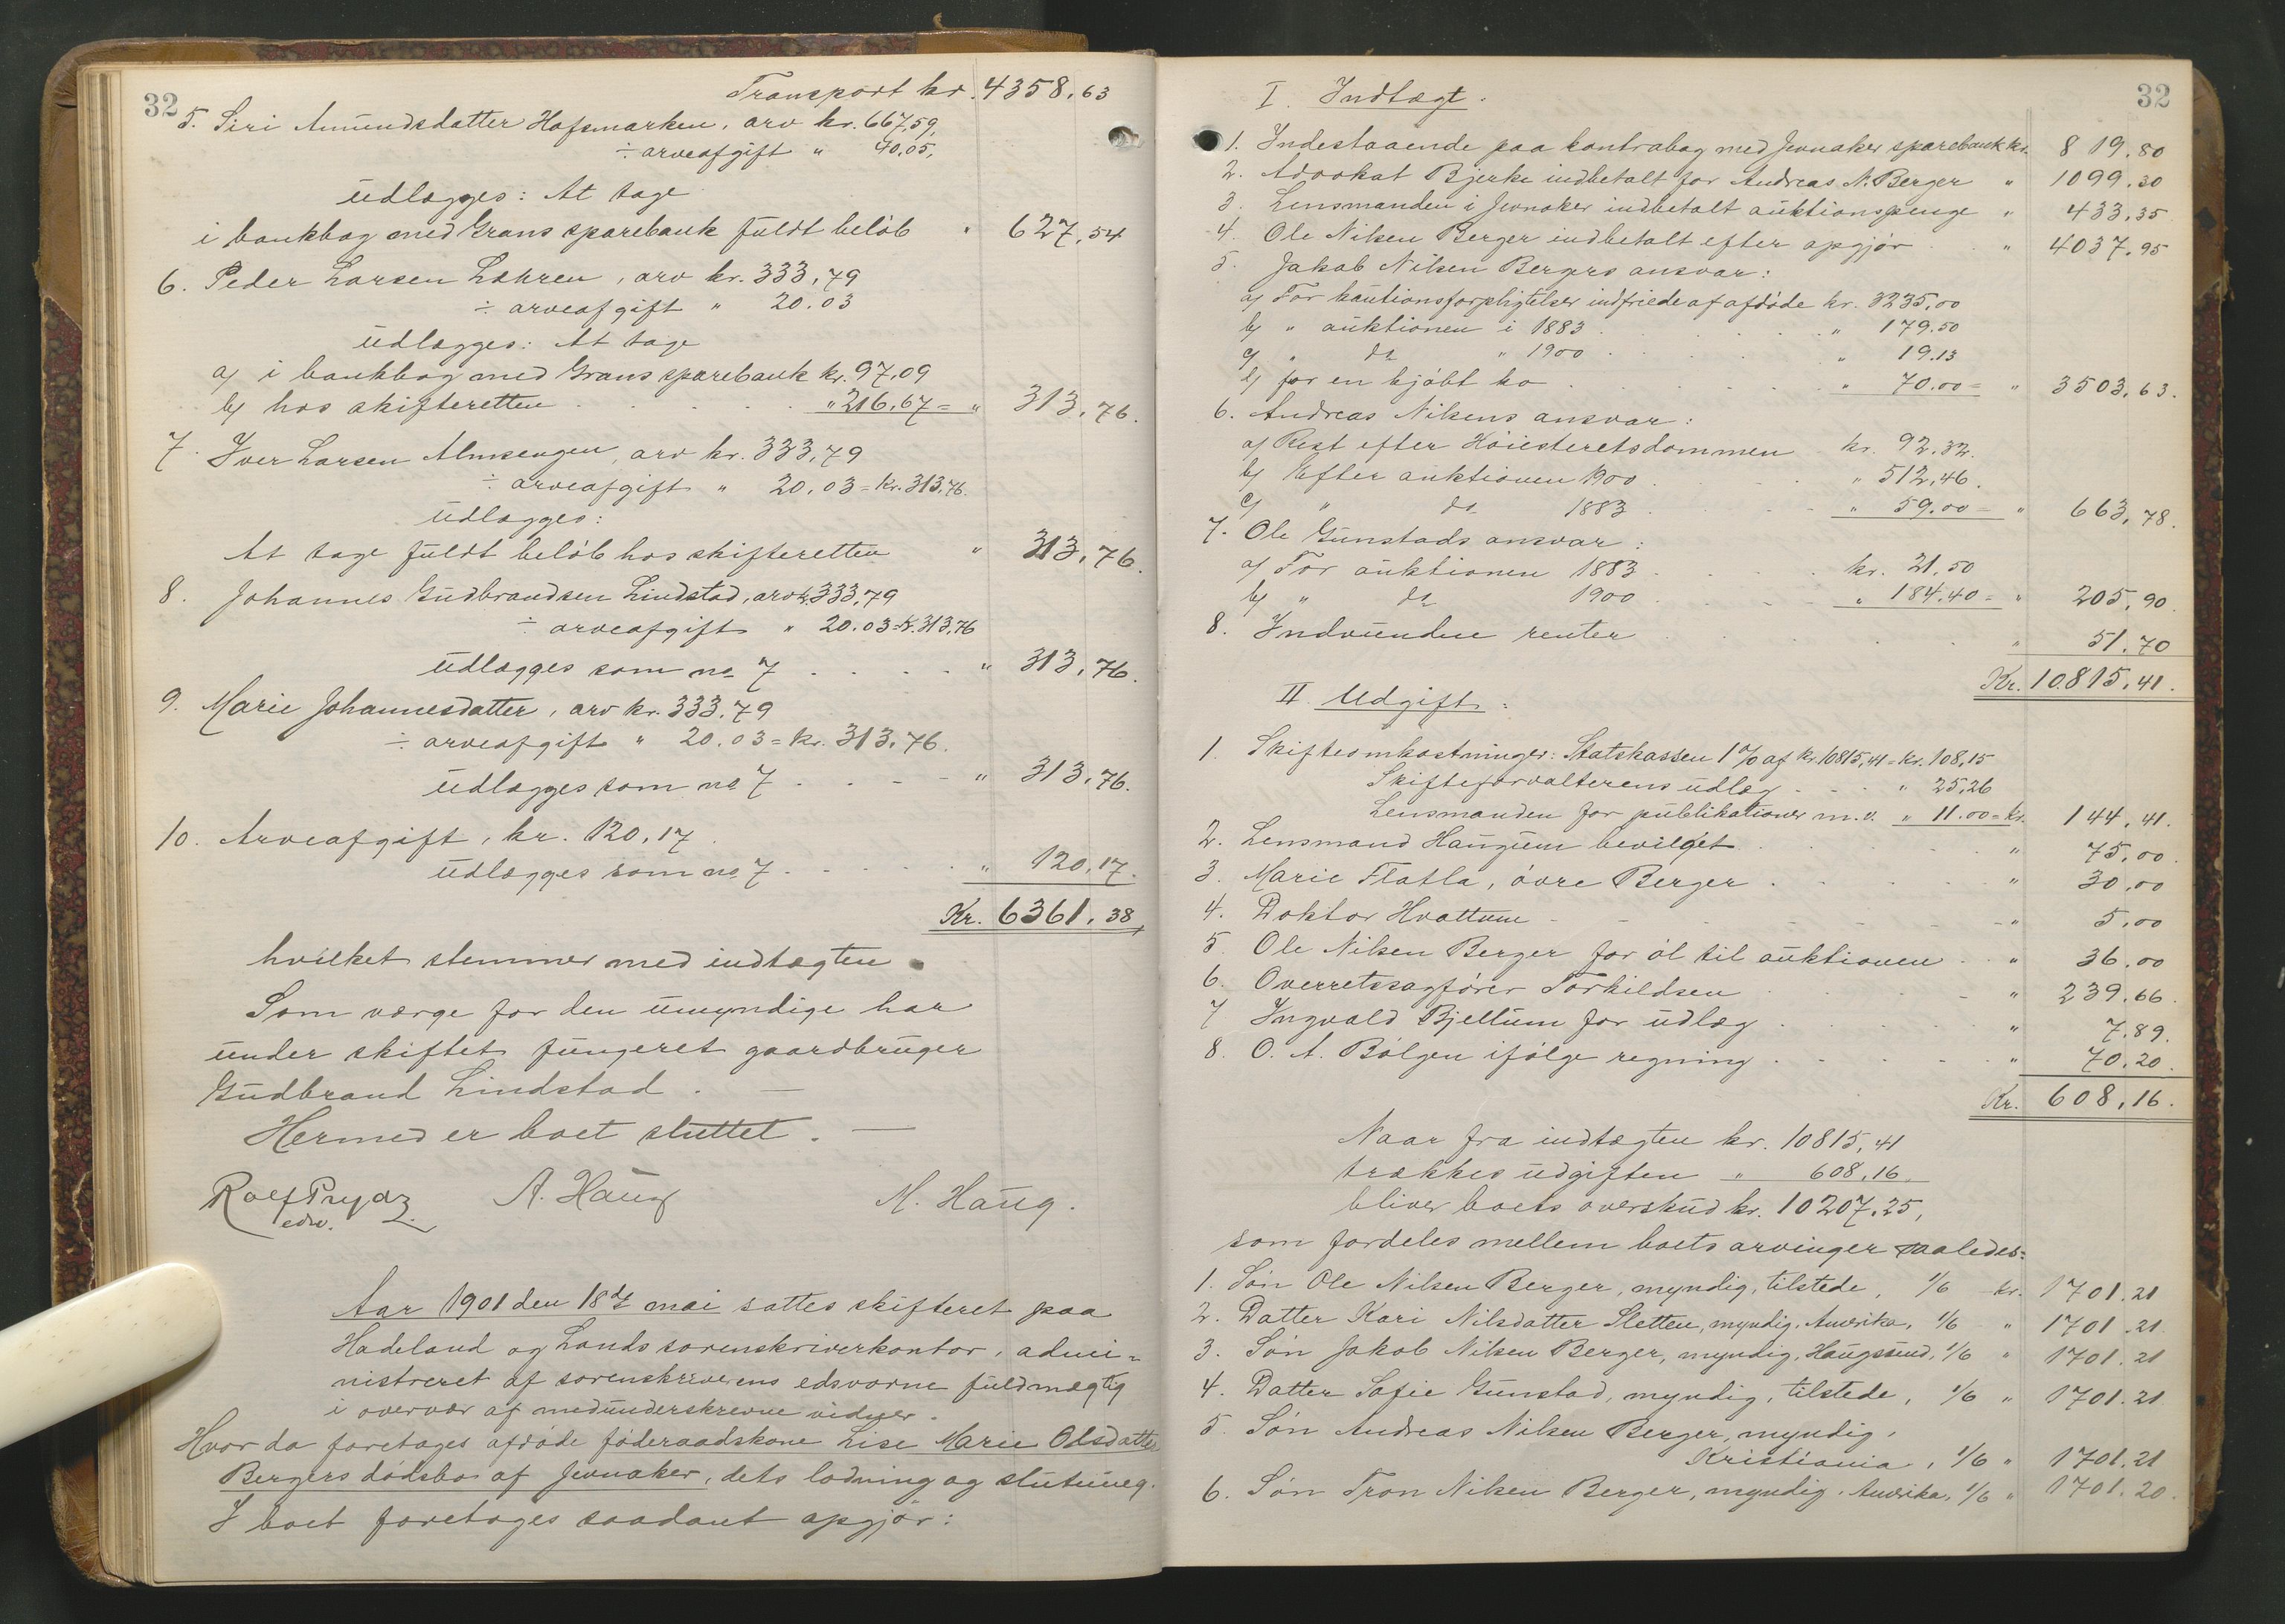 32
Transport kr. 4358,63
5. Siri Amundsdatter Hofsmarken, arv kr. 667,59,
÷ arveafgift " 40,05,
udlægges: At tage
i bankbog med Grans sparebank fuldt beløb " 627,54
6. Peder Larsen Løkren, arv kr. 333,79
÷ arveafgift " 20.03
udlægges: At tage
a) i bankbog med Grans sparebank kr. 97,09
b) hos skifteretten " 216,67 = " 313,76.
7. Iver Larsen Almsengen, arv kr. 333,79
÷ arveafgift " 20,03 = kr. 313,76.
udlægges:
At tage fuldt beløb hos skifteretten " 313,76.
8. Johannes Gudbrandsen Lindstad, arv k. 333,79
÷ arveafgift " 20.03 = k. 313,76
udlægges som no 7 " 313,76.
9. Marie Johannesdatter, arv kr. 333,79
÷ arveafgift " 20.03 = kr. 313,76.
udlægges som no 7 " 313,76.
10. Arveafgift, kr. 120,17
udlægges som no 7 " 120,17.
Kr. 6361,38,
hvilket stemmer med indtægten.
Som værge for den umyndige har
under skiftet fungeret gaardbruger
Gudbrand Lindstad. —
Hermed er boet sluttet. —
Rolf Prydz A. Haug M. Haug.
edsv.
Aar 1901 den 18de mai sattes skifteret paa
Hadeland og Lands sorenskriverkontor, admi=
nistreret af sorenskriverens edsvorne fuldmægtig
i overvær af medunderskrevne vidner.
Hvor da foretages afdøde føderaadskone Lise Marie Olsdatter
Bergers dødsbo af Jevnaker, dets lodning og slutning.
I boet foretages saadant opgjør:
32
I. Indtægt.
1. Indestaaende paa kontrabog med Jevnaker sparebank kr. 819.80
2. Advokat Bjerke indbetalt for Andreas N. Berger " 1099.30
3. Lensmanden i Jevnaker indbetalt auktionspenge " 433,35
4. Ole Nilsen Berger indbetalt efter opgjør " 4037,95
5. Jakob Nilsen Bergers ansvar:
a) For kautionsforpligtelser indfriede af afdøde kr. 3235,00
b) " auktionen i 1883 " 179.50
c) " do " 1900 " 19.13
d) for en kjøbt ko " 70.00 = " 3503,63.
6. Andreas Nilsens ansvar:
a) Rest efter Høiesteretsdommen kr. 92,32.
b) Efter auktionen 1900 " 512,46.
c) " do 1883 " 59.00 = " 663,78.
7. Ole Gunstads ansvar:
a) For auktionen 1883 kr. 21,50
b) " do 1900 " 184.40 = " 205,90.
8. Indvundne renter " 51,70
Kr. 10.815,41.
II. Udgift:
1. Skifteomkostninger: Statskassen 1 % af kr. 10815,41 = kr. 108,15
Skifteforvalterens udlæg " 25,26
Lensmanden for publikationer m. v. " 11.00 = kr. 144,41.
2. Lensmand Haugum bevilget " 75,00.
3. Marie Flatla, øvre Berger " 30,00
4. Doktor Hvattum " 5,00
5. Ole Nilsen Berger for øl til auktionen " 36.00
6. Overretssagfører Torkildsen " 239.66.
7 Ingvald Bjellum for udlæg " 7,89.
8. O. A. Bølgen ifølge regning " 70,20.
Kr. 608,16.
Naar fra indtægten kr. 10815,41
trækkes udgiften " 608,16,
bliver boets overskud kr. 10207.25,
som fordeles mellem boets arvinger saaledes:
1. Søn Ole Nilsen Berger, myndig, tilstede, 1/6 kr. 1701.21
2. Datter Kari Nilsdatter Sletten, myndig, Amerika, 1/6 " 1701.21
3. Søn Jakob Nilsen Berger, myndig, Haugsund, 1/6 " 1701.21
4. Datter Sofie Gunstad, myndig, tilstede, 1/6 " 1701.21
5. Søn Andreas Nilsen Berger, myndig,
Kristiania, 1/6 " 1701.21
6. Søn Tron Nilsen Berger, myndig, Amerika, 1/6 " 1701.20.